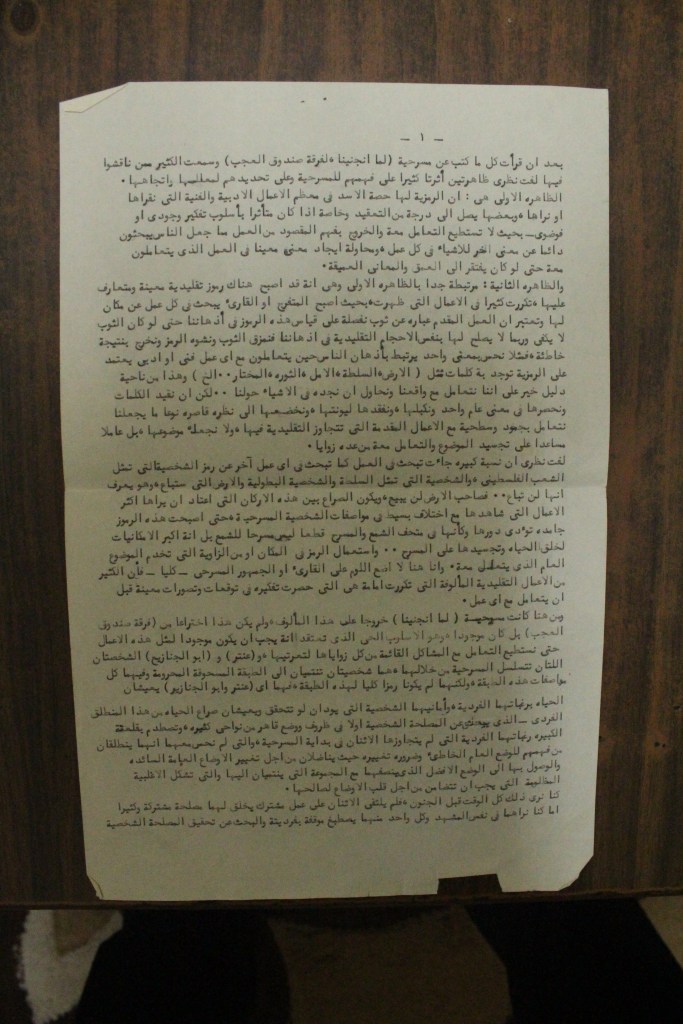 — ١ —
بعد ان قرأت كل ما كتب عن مسرحية (لما انجنينا ٠لفرقة صندوق العجب) وسمعت الكثير ممن ناقشوا
فيها لفت نظرى ظاهرتين أثرتا كثيرا على فهمهم للمسرحية وعلى تحديدهم لمعالمها واتجاهها ٠
الظاهره الاولى هى : ان الرمزية لها حصة الاسد فى معظم الاعمال الادبية والفنية التى نقرأها
او نراها ٠وبعضها يصل الى درجة من التعقيد وخاصة اذا كان متأثرا بأسلوب تفكير وجودى او
فوضوى_ بحيث لا تستطيع التعامل معة والخروج بفهم المقصود من العمل مما جعل الناس يبحثون
دائما عن معنى اخر للاشياء فى كل عمل ٠ومحاولة ايجاد معنى معينا فى العمل الذى يتعاملون
معة حتى لو كان يفتقر الى العمق والمعانى العميقة ٠
والظاهره الثانية : مرتبطة جدا بالظاهره الاولى وهى انة قد اصبح هناك رموز تقليدية معينة ومتعارف
عليها ٠تكررت كثيرا فى الاعمال التى ظهرت ٠بحيث اصبح المتفرج او القارىء يبحث فى كل عمل عن مكان
لها وتعتبر ان العمل المقدم عباره عن ثوب نفصلة على قياس هذه الرموز فى أذهاننا حتى لو كان الثوب
لا يكفى وربما لا يصلح لها بنفس الاحجام التقليدية فى اذهاننا فنمزق الثوب ونشوه الرمز ونخرج بنتيجة
خاطئة ٠فمثلا نحس بمعنى واحد يرتبط بأذهان الناس حين يتعاملون مع اى عمل فنى او ادبى يعتمد
على الرمزية توجد بة كلمات مثل ( الارض ٠السلطة ٠الامل ٠الثوره ٠المختار ٠٠الخ ) وهذا من ناحية
دليل خير على اننا نتعامل مع واقعنا ونحاول ان نجده فى الاشياء حولنا ٠٠لكن ان نقيد الكلمات
ونحصرها فى معنى عام واحد ونكبلها ٠ونفقدها ليونتها ٠ونخضعها الى نظره قاصره نوعا ما يجعلنا
نتعامل بجمود وسطحية مع الاعمال المقدمة التى تتجاوز التقليدية فيها ٠ولا نجعلة موضوعها ٠بل عاملا
مساعدا على تجسيد الموضوع والتعامل معة من عده زوايا ٠
لفت نظرى ان نسبة كبيره جاءت تبحث فى العمل كما تبحث فى اى عمل آخر عن رمز الشخصية التى تمثل
الشعب الفلسطينى ٠والشخصية التى تمثل السلطة والشخصية البطولية والارض التى ستباع ٠وهو يعرف
انها لن تباع ٠٠ فصاحب الارض لن يبيع ٠ويكون الصراع بين هذه الاركان التى اعتاد ان يراها اكثر
الاعمال التى شاهدها مع اختلاف بسيط فى مواصفات الشخصية المسرحية ٠حتى اصبحت هذه الرموز
جامده تؤدى دورها وكأنها فى متحف الشمع والمسرح قطعا ليس مسرحا للشمع بل انة اكبر الامكانيات
لخلق الحياه وتجسيدها على المسرح ٠٠ واستعمال الرمز فى المكان او من الزاوية التى تخدم الموضوع
العام الذى يتعامل معة ٠ وانا هنا لا اضع اللوم على القارىء او الجمهور المسرحى _ كليا _ فأن الكثير
من الاعمال التقليدية المألوفة التى تكررت امامة هى التى حصرت تفكيره فى توقعات وتصورات معينة قبل
ان يتعامل مع اى عمل ٠
ومن هنا كانت مسرحية ( لما انجنينا ) خروجا على هذا المألوف ٠ولم يكن هذا اختراعا من (فرقة صندوق
العجب) بل كان موجودا ٠وهو الاسلوب الحى الذى تعتقد انة يجب ان يكون موجودا لمثل هذه الاعمال
حتى نستطيع التعامل مع المشاكل القائمة من كل زواياها لتعريتها ٠و(عنتر) و (ابو الجنازير) الشخصيتان
اللتان تتسلسل المسرحية من خلالهما ٠هما شخصيتان تنتميان الى الطبقة المسحوقة المحرومة وفيهما كل
مواصفات هذه الطبقة ٠ولكنهما لم يكونا رمزا كليا لهذه الطبقة ٠فهما اى (عنتر وابو الجنازير) يعيشان
الحياه برغباتهما الفردية ٠وأمانيهما الشخصية التى يودان لو تتحقق ويعيشان صراع الحياه من هذا المنطلق
الفردى _ الذى يبحث عن المصلحة الشخصية اولا فى ظروف ووضع قاهر من نواحى كثيره ٠وتصطدم
الكبيره رغباتهما الفردية التى لم يتجاوزها الاثنان فى بداية المسرحية ٠والتى لم نحس معهما انهما ينطلقان
من فهمهم للوضع العام الخاطىء وضروره تغييره حيث يناضلان من اجل تغيير الاوضاع العامة السائده
والوصول بها الى الوضع الافضل الذى ينصفهما مع المجموعة التى ينتميان اليها والتى تشكل الاغلبية
المظلومة التى يجب ان تتضامن من اجل قلب الاوضاع لصالحها ٠
كنا نرى ذلك كل الوقت قبل الجنون ٠فلم يلتقى الاثنان على عمل مشترك يخلق لهما مصلحة مشتركة وكثيرا
اما كنا نراهما فى نفس المشهد وكل واحد منهما يصطبغ موقفة بفرديتة والبحث عن تحقيق المصلحة الشخصية